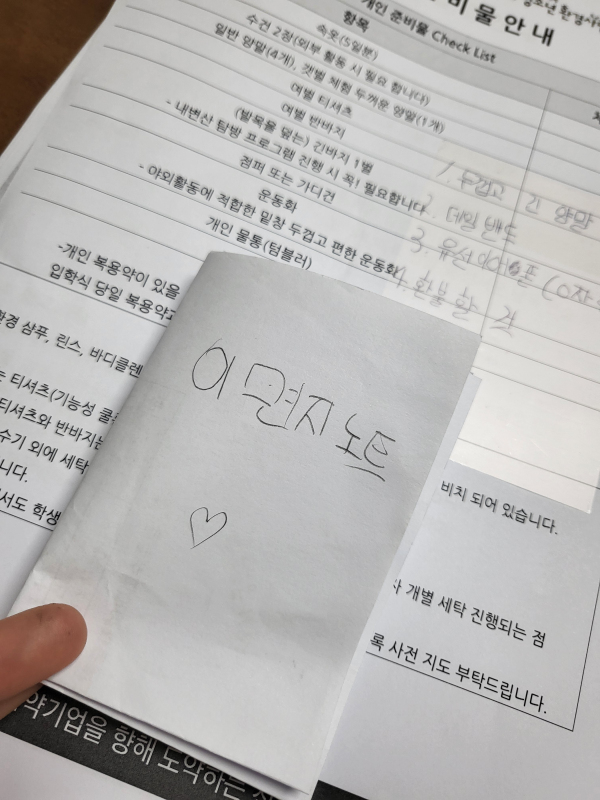 비 물 안 내
개인 준비물 Check List
항목
속옷(5일분)
수건 2장(외부 활동 시 필요 합니다)
일반 양말(4개), 갯벌 체험 두꺼운 양말(1개)
여벌 티셔츠
여벌 반바지
(발목을 덮는) 긴바지 1벌
- 내변산 탐방 프로그램 진행 시 꼭! 필요합니다
점퍼 또는 가디건
운동화
- 야외활동에 적합한 밑창 두껍고 편한 운동화
개인 물통(텀블러)
-개인 복용약이 있을
입학식 당일 복용약
1. 두껍고 긴 양말
2. 데일밴드
3. 유선
4. 환불할 것
샴푸, 린스, 바디클렌
티셔츠(기능성 쿨
티셔츠와 반바지는
수기 외에 세탁
니다.
서도 학생
비치 되어 있습니다.
개별 세탁 진행되는 점
록 사전 지도 부탁드립니다.
이면지 노트
♡
약기업을 향해 도약하는